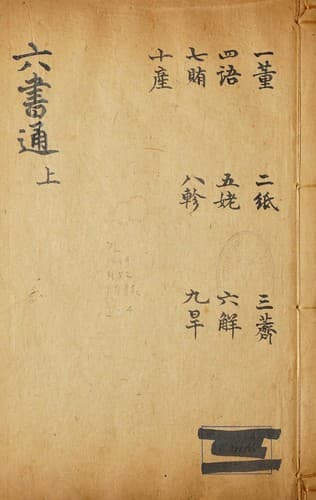 一董　二紙　三薺
四語　五姥　六解
七賄　八軫　九旱
十產
六書通
上